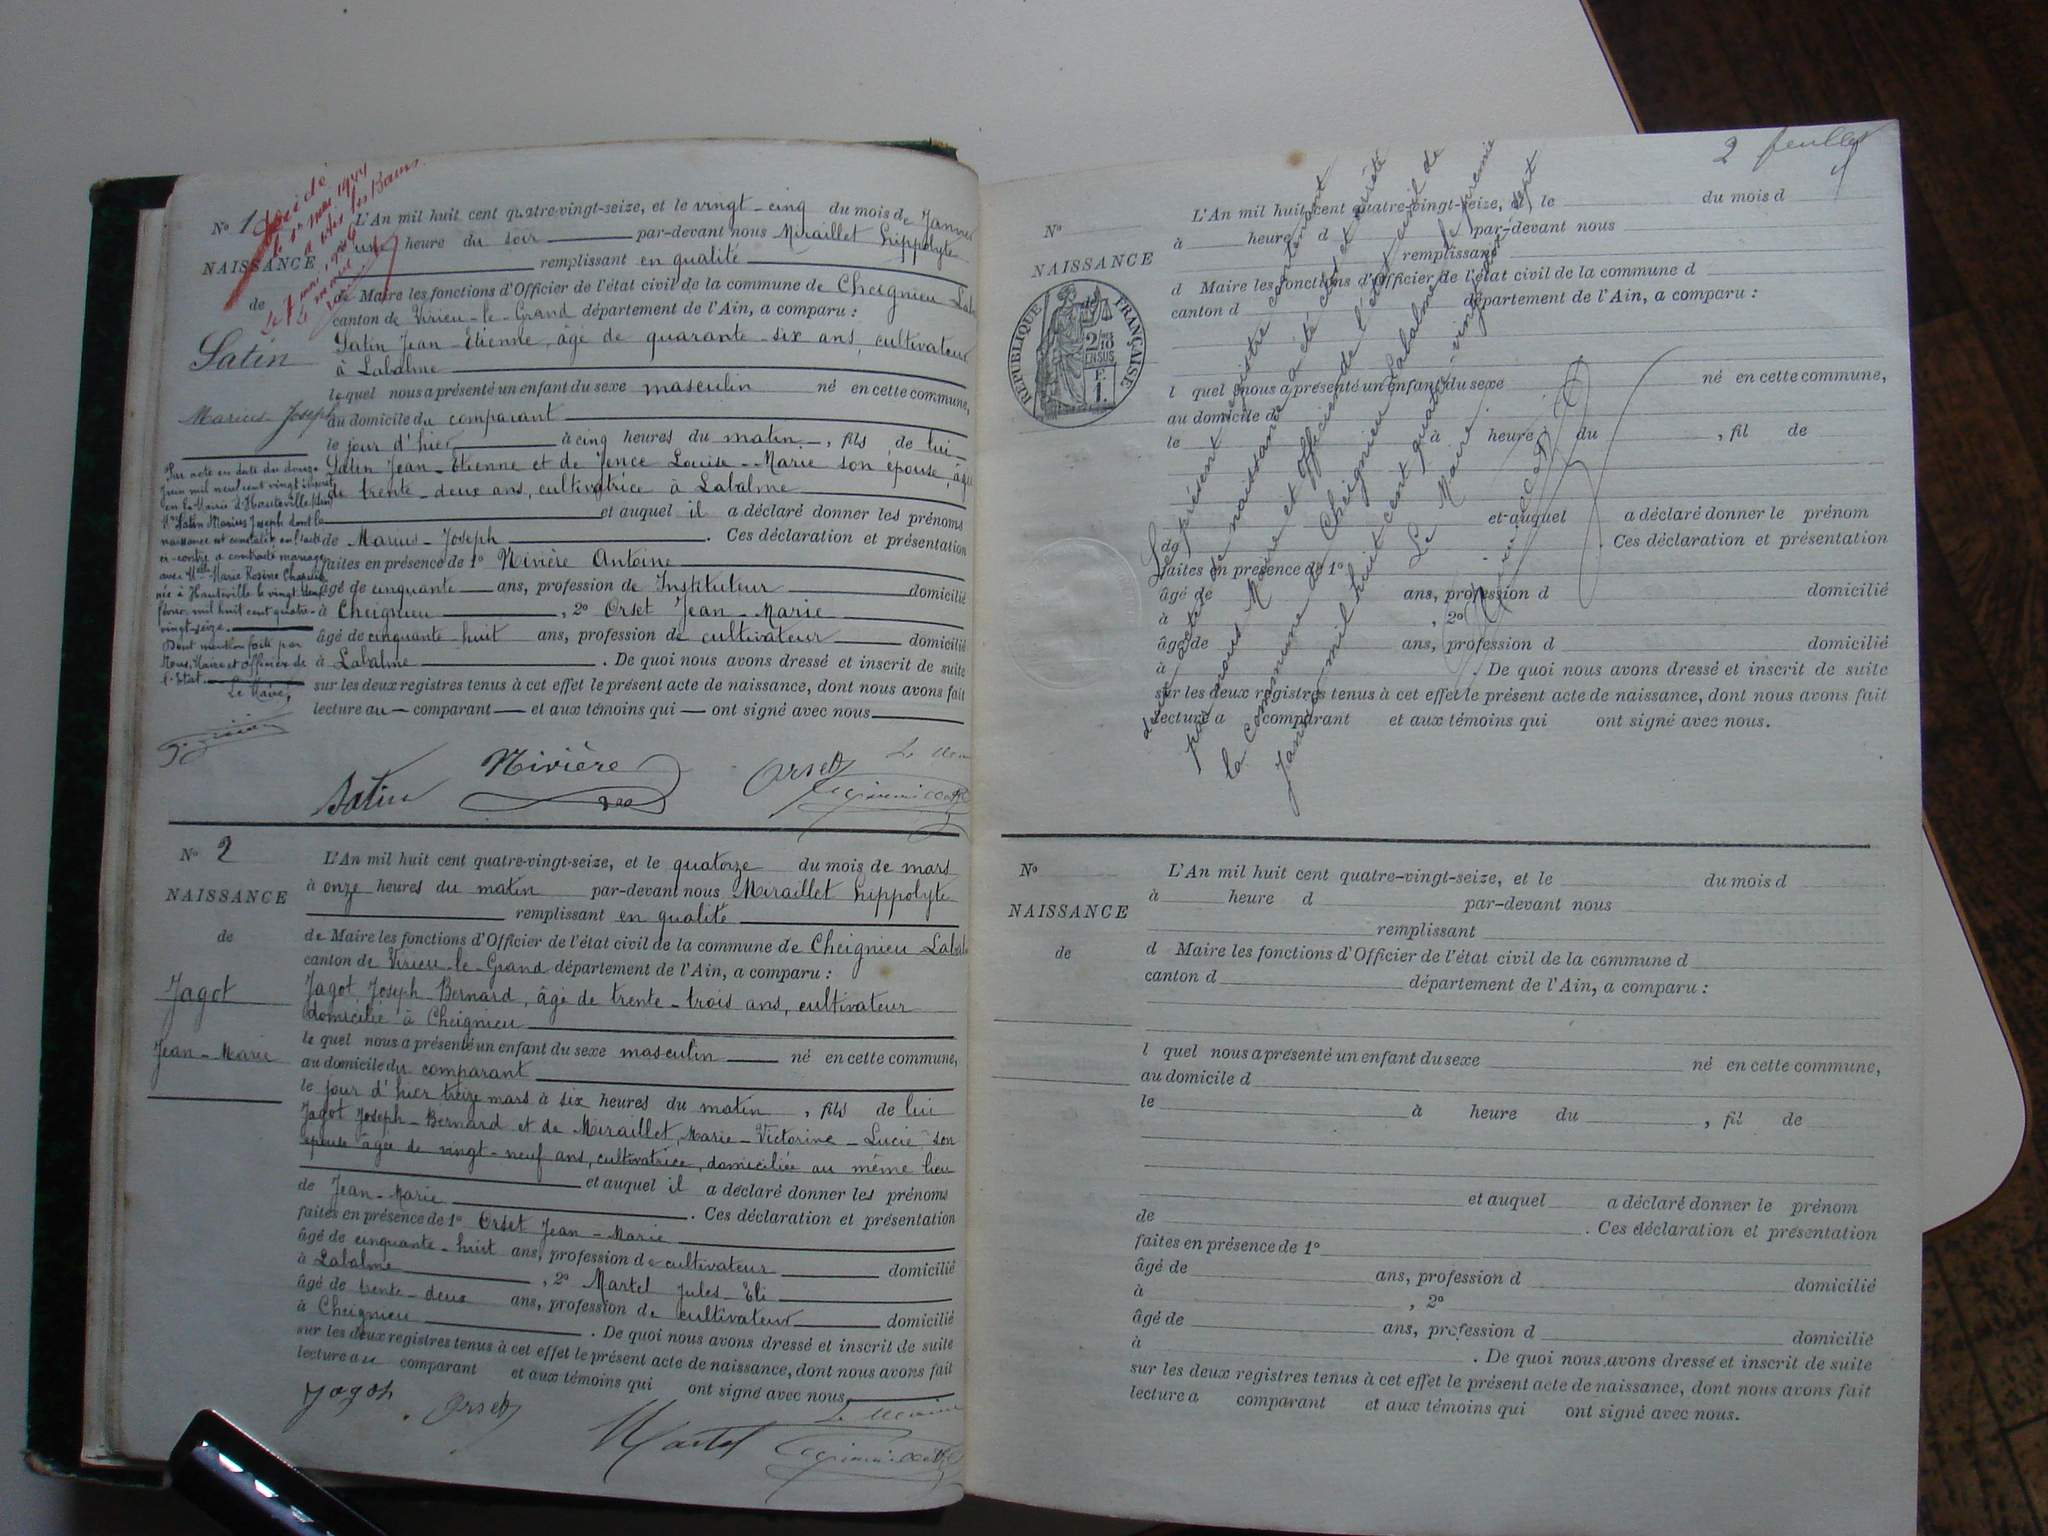 No 1
NAISSANCE
de
Satin
Marius-Joseph
L'An mil huit cent quatre-vingt-seize, et le vingt-cinq du mois de Janvier
une heure du soir par-devant nous Miraillet hippolyte
remplissant en qualité
de Maire les fonctions d'Officier de l'état civil de la commune de Cheignieu Lab
canton de Virieu-le-Grand département de l'Ain, a comparu :
Satin Jean-Etienne, âgé de quarante-six ans, cultivateur
à Labalme
lequel nous a présenté un enfant du sexe masculin né en cette commune,
au domicile du comparant
le jour d'hier à cinq heures du matin, fils de lui
Satin Jean-Etienne et de Jence Louise-Marie son épouse, âgée
de trente-deux ans, cultivatrice à Labalme
et auquel il a déclaré donner les prénoms
de Marius-Joseph. Ces déclaration et présentation
faites en présence de 1° Nivière Antoine
âgé de cinquante ans, profession de Instituteur domicilié
à Cheignieu, 2° Orset Jean-Marie
âgé de cinquante huit ans, profession de cultivateur domicilié
à Labalme. De quoi nous avons dressé et inscrit de suite
sur les deux registres tenus à cet effet le présent acte de naissance, dont nous avons fait
lecture au comparant et aux témoins qui ont signé avec nous
Par acte en date du douze
Juin mil neuf cent vingt
en la Mairie d'Hauteville (Ain)
Mr Satin Marius Joseph dont la
naissance est constatée en l'acte
ci-contre a contracté mariage
avec Melle Marie Rosine
née à Hauteville le vingt
février mil huit cent quatre-
vingt-seize.
Dont mention faite par
Nous, Maire et Officier de
l'Etat
Le Maire,
Satin Nivière Orset Le Maire
No 2
NAISSANCE
de
Jagot
Jean-Marie
L'An mil huit cent quatre-vingt-seize, et le quatorze du mois de mars
à onze heures du matin par-devant nous Miraillet hippolyte
remplissant en qualité
de Maire les fonctions d'Officier de l'état civil de la commune de Cheignieu Labalme
canton de Virieu-le-Grand département de l'Ain, a comparu :
Jagot Joseph-Bernard, âgé de trente-trois ans, cultivateur
domicilié à Cheignieu
lequel nous a présenté un enfant du sexe masculin né en cette commune,
au domicile du comparant
le jour d'hier treize mars à six heures du matin, fils de lui
Jagot Joseph-Bernard et de Miraillet, Marie-Victorine-Lucie son
épouse âgée de vingt-neuf ans, cultivatrice, domiciliée au même lieu
et auquel il a déclaré donner les prénoms
de Jean-Marie. Ces déclaration et présentation
faites en présence de 1° Orset Jean-Marie
âgé de cinquante-huit ans, profession de cultivateur domicilié
à Labalme, 2° Martel Jules-Eli
âgé de trente-deux ans, profession de cultivateur domicilié
à Cheignieu. De quoi nous avons dressé et inscrit de suite
sur les deux registres tenus à cet effet le présent acte de naissance, dont nous avons fait
lecture au comparant et aux témoins qui ont signé avec nous
Jagot Orset Martel Le Maire
2 feuillet
No
NAISSANCE
de
RÉPUBLIQUE FRANÇAISE
2/10 EN SUS
F. 1.
L'An mil huit cent quatre-vingt-seize, et le du mois d
à heure d par-devant nous
remplissant
d Maire les fonctions d'Officier de l'état civil de la commune d
canton d département de l'Ain, a comparu :
l quel nous a présenté un enfant du sexe né en cette commune,
au domicile d
le à heure du , fil de
et auquel a déclaré donner le prénom
de . Ces déclaration et présentation
faites en présence de 1°
âgé de ans, profession d domicilié
à , 2°
âgé de ans, profession d domicilié
à . De quoi nous avons dressé et inscrit de suite
sur les deux registres tenus à cet effet le présent acte de naissance, dont nous avons fait
lecture a comparant et aux témoins qui ont signé avec nous.
Le présent registre contenant
deux actes de naissance a été clos et arrêté
par nous Maire et Officier de l'état civil de
la commune de Cheignieu Labalme le premier
Janvier mil huit cent quatre-vingt-dix sept
Le Maire
No
NAISSANCE
de
L'An mil huit cent quatre-vingt-seize, et le du mois d
à heure d par-devant nous
remplissant
d Maire les fonctions d'Officier de l'état civil de la commune d
canton d département de l'Ain, a comparu :
l quel nous a présenté un enfant du sexe né en cette commune,
au domicile d
le à heure du , fil de
et auquel a déclaré donner le prénom
de . Ces déclaration et présentation
faites en présence de 1°
âgé de ans, profession d domicilié
à , 2°
âgé de ans, profession d domicilié
à . De quoi nous avons dressé et inscrit de suite
sur les deux registres tenus à cet effet le présent acte de naissance, dont nous avons fait
lecture a comparant et aux témoins qui ont signé avec nous.